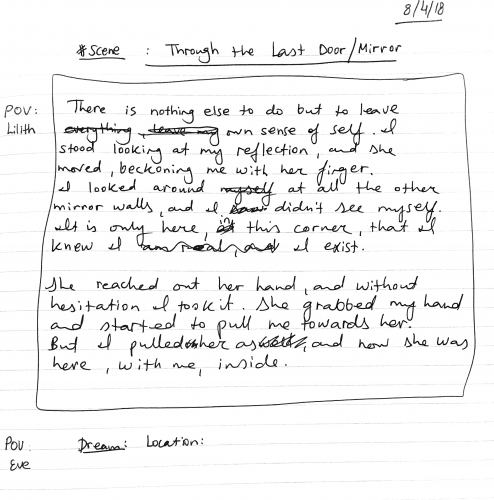 8/4/18
#Scene : Through the Last Door/Mirror
POV:
Lilith
There is nothing else to do but to leave
everything, leave my own sense of self. I
stood looking at my reflection, and she
moved, beckoning me with her finger.
I looked around myself at all the other
mirror walls, and I saw didn't see myself.
It is only here, in this corner, that I
knew I am real, and I exist.
She reached out her hand, and without
hesitation I took it. She grabbed my hand
and started to pull me towards her.
But I pulled her as well, and now she was
here, with me, inside.
POV
Eve
Dream: Location: